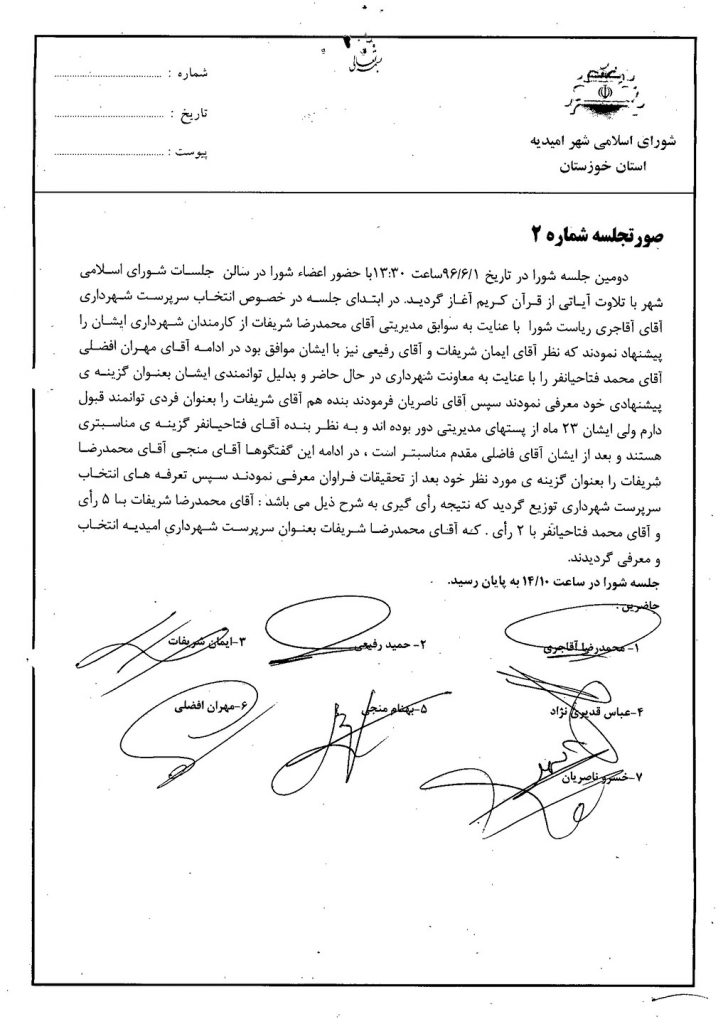 بسمه تعالی
شورای اسلامی شهر امیدیه
استان خوزستان
شماره : ....................
تاریخ : ....................
پیوست : ....................
صورتجلسه شماره ۲
دومین جلسه شورا در تاریخ ۹۶/۶/۱ساعت ۱۳:۳۰با حضور اعضاء شورا در سالن جلسات شورای اسلامی
شهر با تلاوت آیاتی از قرآن کریم آغاز گردید. در ابتدای جلسه در خصوص انتخاب سرپرست شهرداری
آقای آقاجری ریاست شورا با عنایت به سوابق مدیریتی آقای محمدرضا شریفات از کارمندان شهرداری ایشان را
پیشنهاد نمودند که نظر آقای ایمان شریفات و آقای رفیعی نیز با ایشان موافق بود در ادامه آقای مهران افضلی
آقای محمد فتاحیانفر را با عنایت به معاونت شهرداری در حال حاضر و بدلیل توانمندی ایشان بعنوان گزینه ی
پیشنهادی خود معرفی نمودند سپس آقای ناصریان فرمودند بنده هم آقای شریفات را بعنوان فردی توانمند قبول
دارم ولی ایشان ۲۳ ماه از پستهای مدیریتی دور بوده اند و به نظر بنده آقای فتاحیانفر گزینه ی مناسبتری
هستند و بعد از ایشان آقای فاضلی مقدم مناسبتر است ، در ادامه این گفتگوها آقای منجی آقای محمدرضا
شریفات را بعنوان گزینه ی مورد نظر خود بعد از تحقیقات فراوان معرفی نمودند سپس تعرفه های انتخاب
سرپرست شهرداری توزیع گردید که نتیجه رأی گیری به شرح ذیل می باشد : آقای محمدرضا شریفات با ۵ رأی
و آقای محمد فتاحیانفر با ۲ رأی . که آقای محمدرضا شریفات بعنوان سرپرست شهرداری امیدیه انتخاب
و معرفی گردیدند.
جلسه شورا در ساعت ۱۴/۱۰ به پایان رسید.
حاضرین :
۱- محمدرضا آقاجری ۲- حمید رفیعی ۳-ایمان شریفات
۴-عباس قدیری نژاد ۵-بهنام منجی ۶-مهران افضلی
۷-خسرو ناصریان